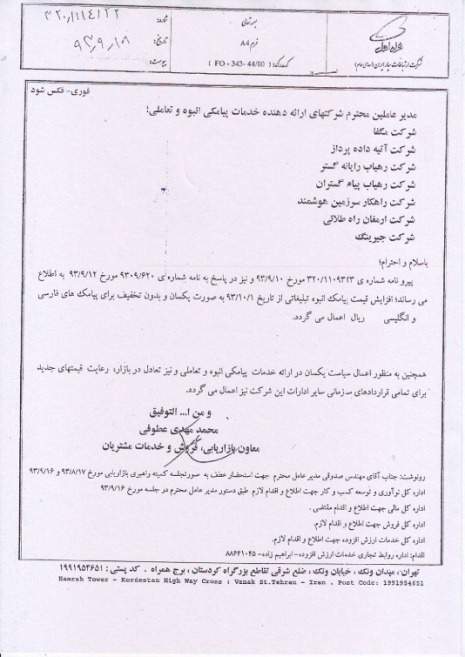 بسمه تعالی
فرم ۸۸
کد مدرک: ( FO - 343- 44/00 )
شماره: ۳۲۰/۱۱۱۴۱۲۲
تاریخ: ۹۳,۹,۱۸
پیوست:
همراه اول
شرکت ارتباطات سیار ایران (سهامی عام)
فوری- فکس شود
مدیر عاملین محترم شرکتهای ارائه دهنده خدمات پیامکی انبوه و تعاملی؛
شرکت مگفا
شرکت آتیه داده پرداز
شرکت رهیاب رایانه گستر
شرکت رهیاب پیام گستران
شرکت راهکار سرزمین هوشمند
شرکت ارمغان راه طلائی
شرکت جیرینگ
باسلام و احترام؛
پیرو نامه شماره ی ۳۲۰/۱۱۰۹۳۴۳ مورخ ۹۳/۹/۱۰ و نیز در پاسخ به نامه شماره ی ۹۳۰۹/۶۲۰ مورخ ۹۳/۹/۱۲ به اطلاع
می رساند؛ افزایش قیمت پیامک انبوه تبلیغاتی از تاریخ ۹۳/۱۰/۱ به صورت یکسان و بدون تخفیف برای پیامک های فارسی
و انگلیسی ریال اعمال می گردد.
همچنین به منظور اعمال سیاست یکسان در ارائه خدمات پیامکی انبوه و تعاملی و نیز تعادل در بازار، رعایت قیمتهای جدید
برای تمامی قراردادهای سازمانی سایر ادارات این شرکت نیز اعمال می گردد.
و من ا... التوفیق
محمد مهدی عطوفی
معاون بازاریابی، فروش و خدمات مشتریان
رونوشت: جناب آقای مهندس صدوقی مدیر عامل محترم جهت استحضار عطف به صورتجلسه کمیته راهبری بازاریابی مورخ ۹۳/۸/۱۷ و ۹۳/۹/۱۶
اداره کل نوآوری و توسعه کسب و کار جهت اطلاع و اقدام لازم طبق دستور مدیر عامل محترم در جلسه مورخ ۹۳/۹/۱۶
اداره کل مالی جهت اطلاع و اقدام مقتضی .
اداره کل فروش جهت اطلاع و اقدام لازم.
اداره کل خدمات ارزش افزوده جهت اطلاع و اقدام لازم.
اقدام: اداره روابط تجاری خدمات ارزش افزوده- ابراهیم زاده- ۸۸۶۴۱۰۴۵
تهران، میدان ونک، خیابان ونک، ضلع شرقی تقاطع بزرگراه کردستان، برج همراه . کد پستی : ۱۹۹۱۹۵۴۶۵۱
Hamrah Tower - Kordestan High Way Cross : Vanak St.Tehran - Iran . Post Code: 1991954651